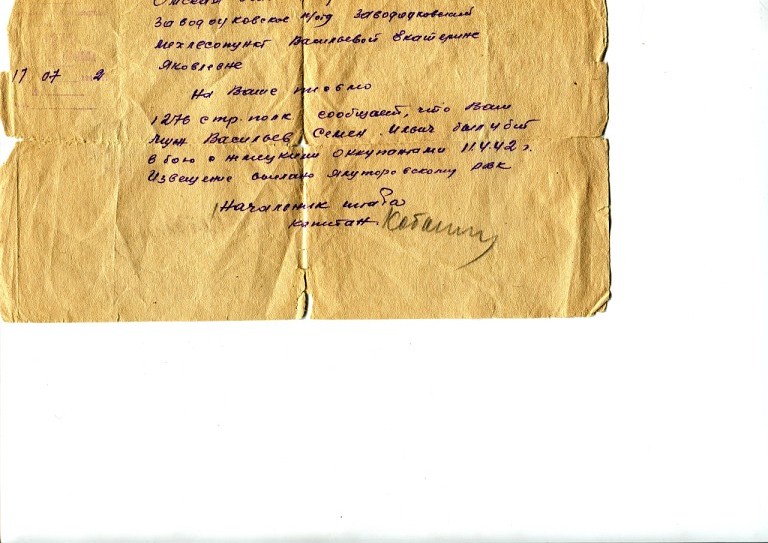 Заводоуковское п/отд Заводоуковский
мехлесопункт Васильевой Екатерине
Яковлевне
17 07 2
На Ваше письмо
1276 стр. полк сообщает, что Ваш
муж Васильев Семен Ильич был убит
в бою с немецкими оккупантами 11.4.42 г.
Извещение выслано Ялуторовскому РВК
Начальник штаба
капитан